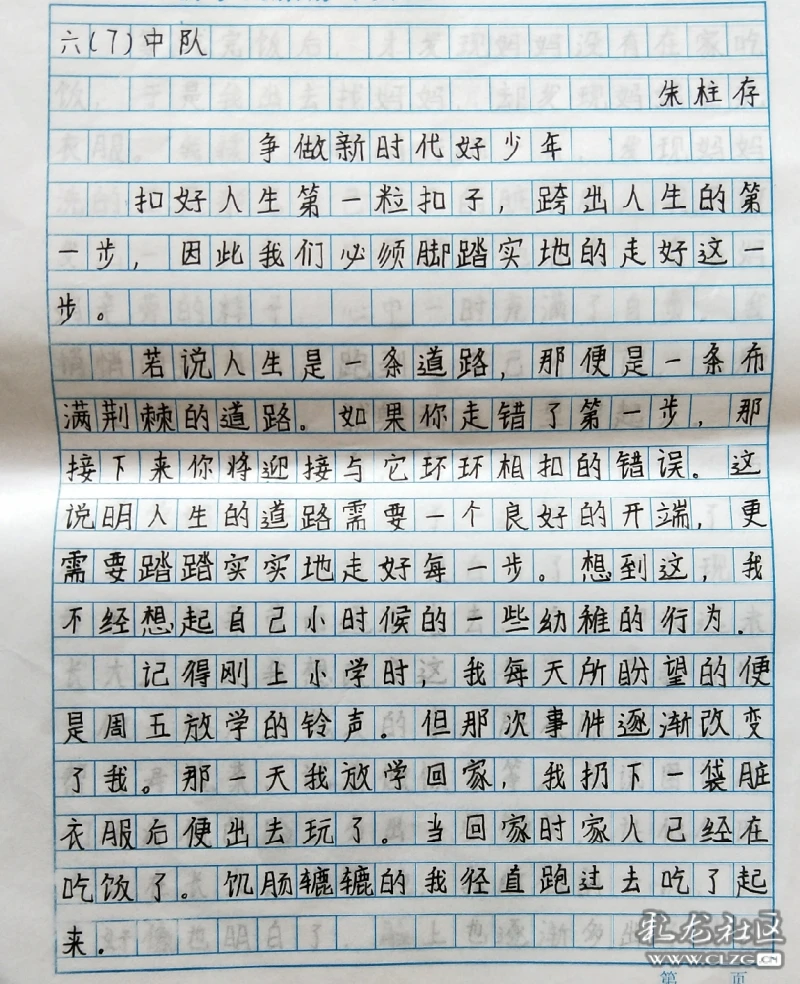 六(7)中队
朱柱存
争做新时代好少年
扣好人生第一粒扣子，跨出人生的第
一步，因此我们必须脚踏实地的走好这一
步。
若说人生是一条道路，那便是一条布
满荆棘的道路。如果你走错了第一步，那
接下来你将迎接与它环环相扣的错误。这
说明人生的道路需要一个良好的开端，更
需要踏踏实实地走好每一步。想到这，我
不经想起自己小时候的一些幼稚的行为.
记得刚上小学时，我每天所盼望的便
是周五放学的铃声。但那次事件逐渐改变
了我。那一天我放学回家，我扔下一袋脏
衣服后便出去玩了。当回家时家人已经在
吃饭了。饥肠辘辘的我径直跑过去吃了起
来.
第 页
彩龙社区
WWW.CLZG.CN